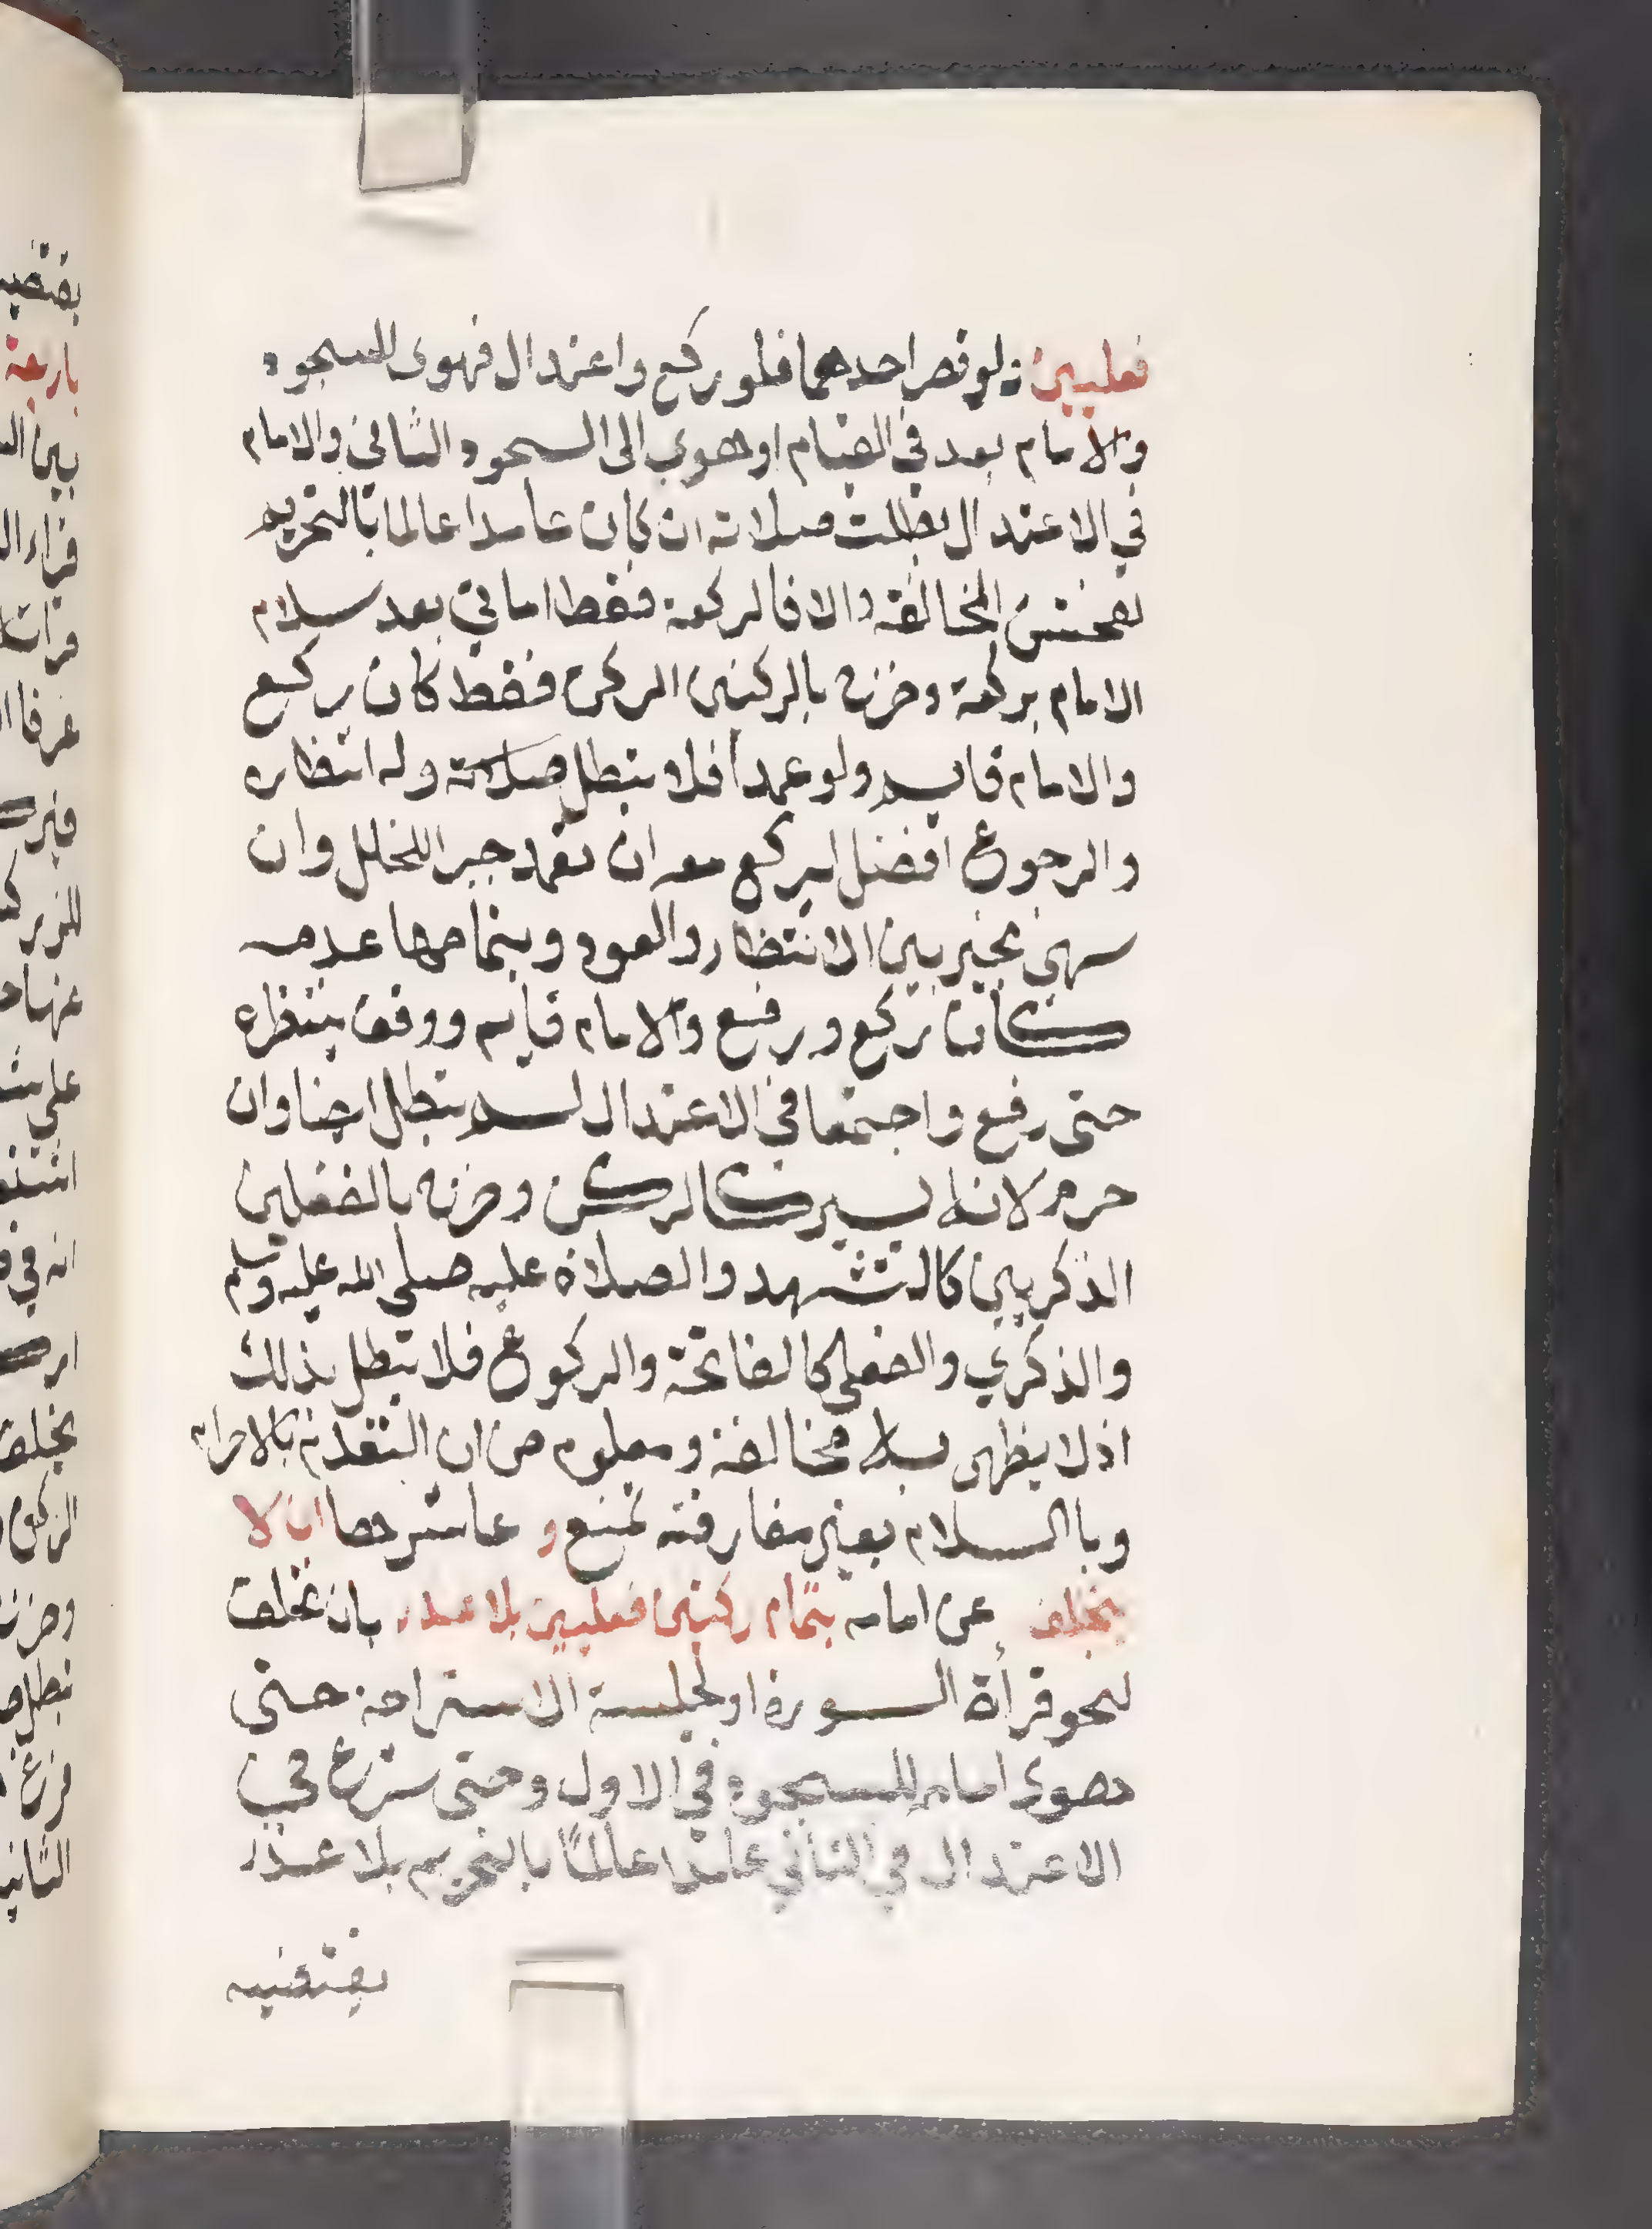 فعليين ولو قصر احدهما فلو ركع واعتدال فهوى للسجود
والامام بعد في القيام او هوى الى السجود الثاني والامام
في الاعتدال بطلت صلاته ان كان عامدا عالما بالتحريم
لفحش المخالفة والا فالركعة فقط اماتي بعد سلام
الامام بركعة وخرج بالركنين الركن فقط كان ركع
والامام قايم ولو عمدا فلا تبطل صلاته وله انتظاره
والرجوع افضل ليركع معه ان تعمد جبرا للخلل وان
سهى تخير بين الانتظار والعود وبتمامهما عدمه
كان ركع ورفع والامام قايم ووقف ينتظره
حتى رفع واجتمعا في الاعتدال لم تبطل ايضا وان
حرم لانه يسير كالركن وخرج بالفعلين
الذكريين كالتشهد والصلاة عليه صلى الله عليه وسلم
والذكري والفعلي كالفاتحة والركوع فلا تبطل بذلك
اذ لا يظهر به مخالفة ومعلوم من ان التقدم بالاحرام
وبالسلام بغير مفارقته تمنع و عاشرها ان لا
يتخلف عن امامه بتمام ركنين فعليين بلا عذر بان تخلف
لنحو قرأة السورة او لجلسة الاستراحة حتى
هوى امامه للسجود في الاول وحتى شرع في
الاعتدال في الثاني عامدا عالمًا بالتحريم بلا عذر
يقتضيه